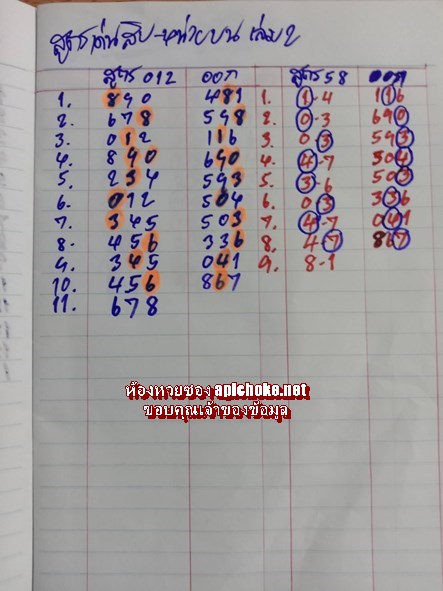 สูตรเด่นสิบ-หน่วยบน เล่ม2
สูตร 012 ออก สูตร 58 ออก
1. 890 481 1. 1-4 116
2. 678 598 2. 0-3 690
3. 012 116 3. 03 593
4. 890 690 4. 4-7 304
5. 234 593 5. 3-6 503
6. 012 504 6. 03 336
7. 345 503 7. 4-7 041
8. 456 336 8. 4-7 867
9. 345 041 9. 8-1
10. 456 867
11. 678
ห้องหวยซอง apichoke.net
ขอบคุณเจ้าของข้อมูล